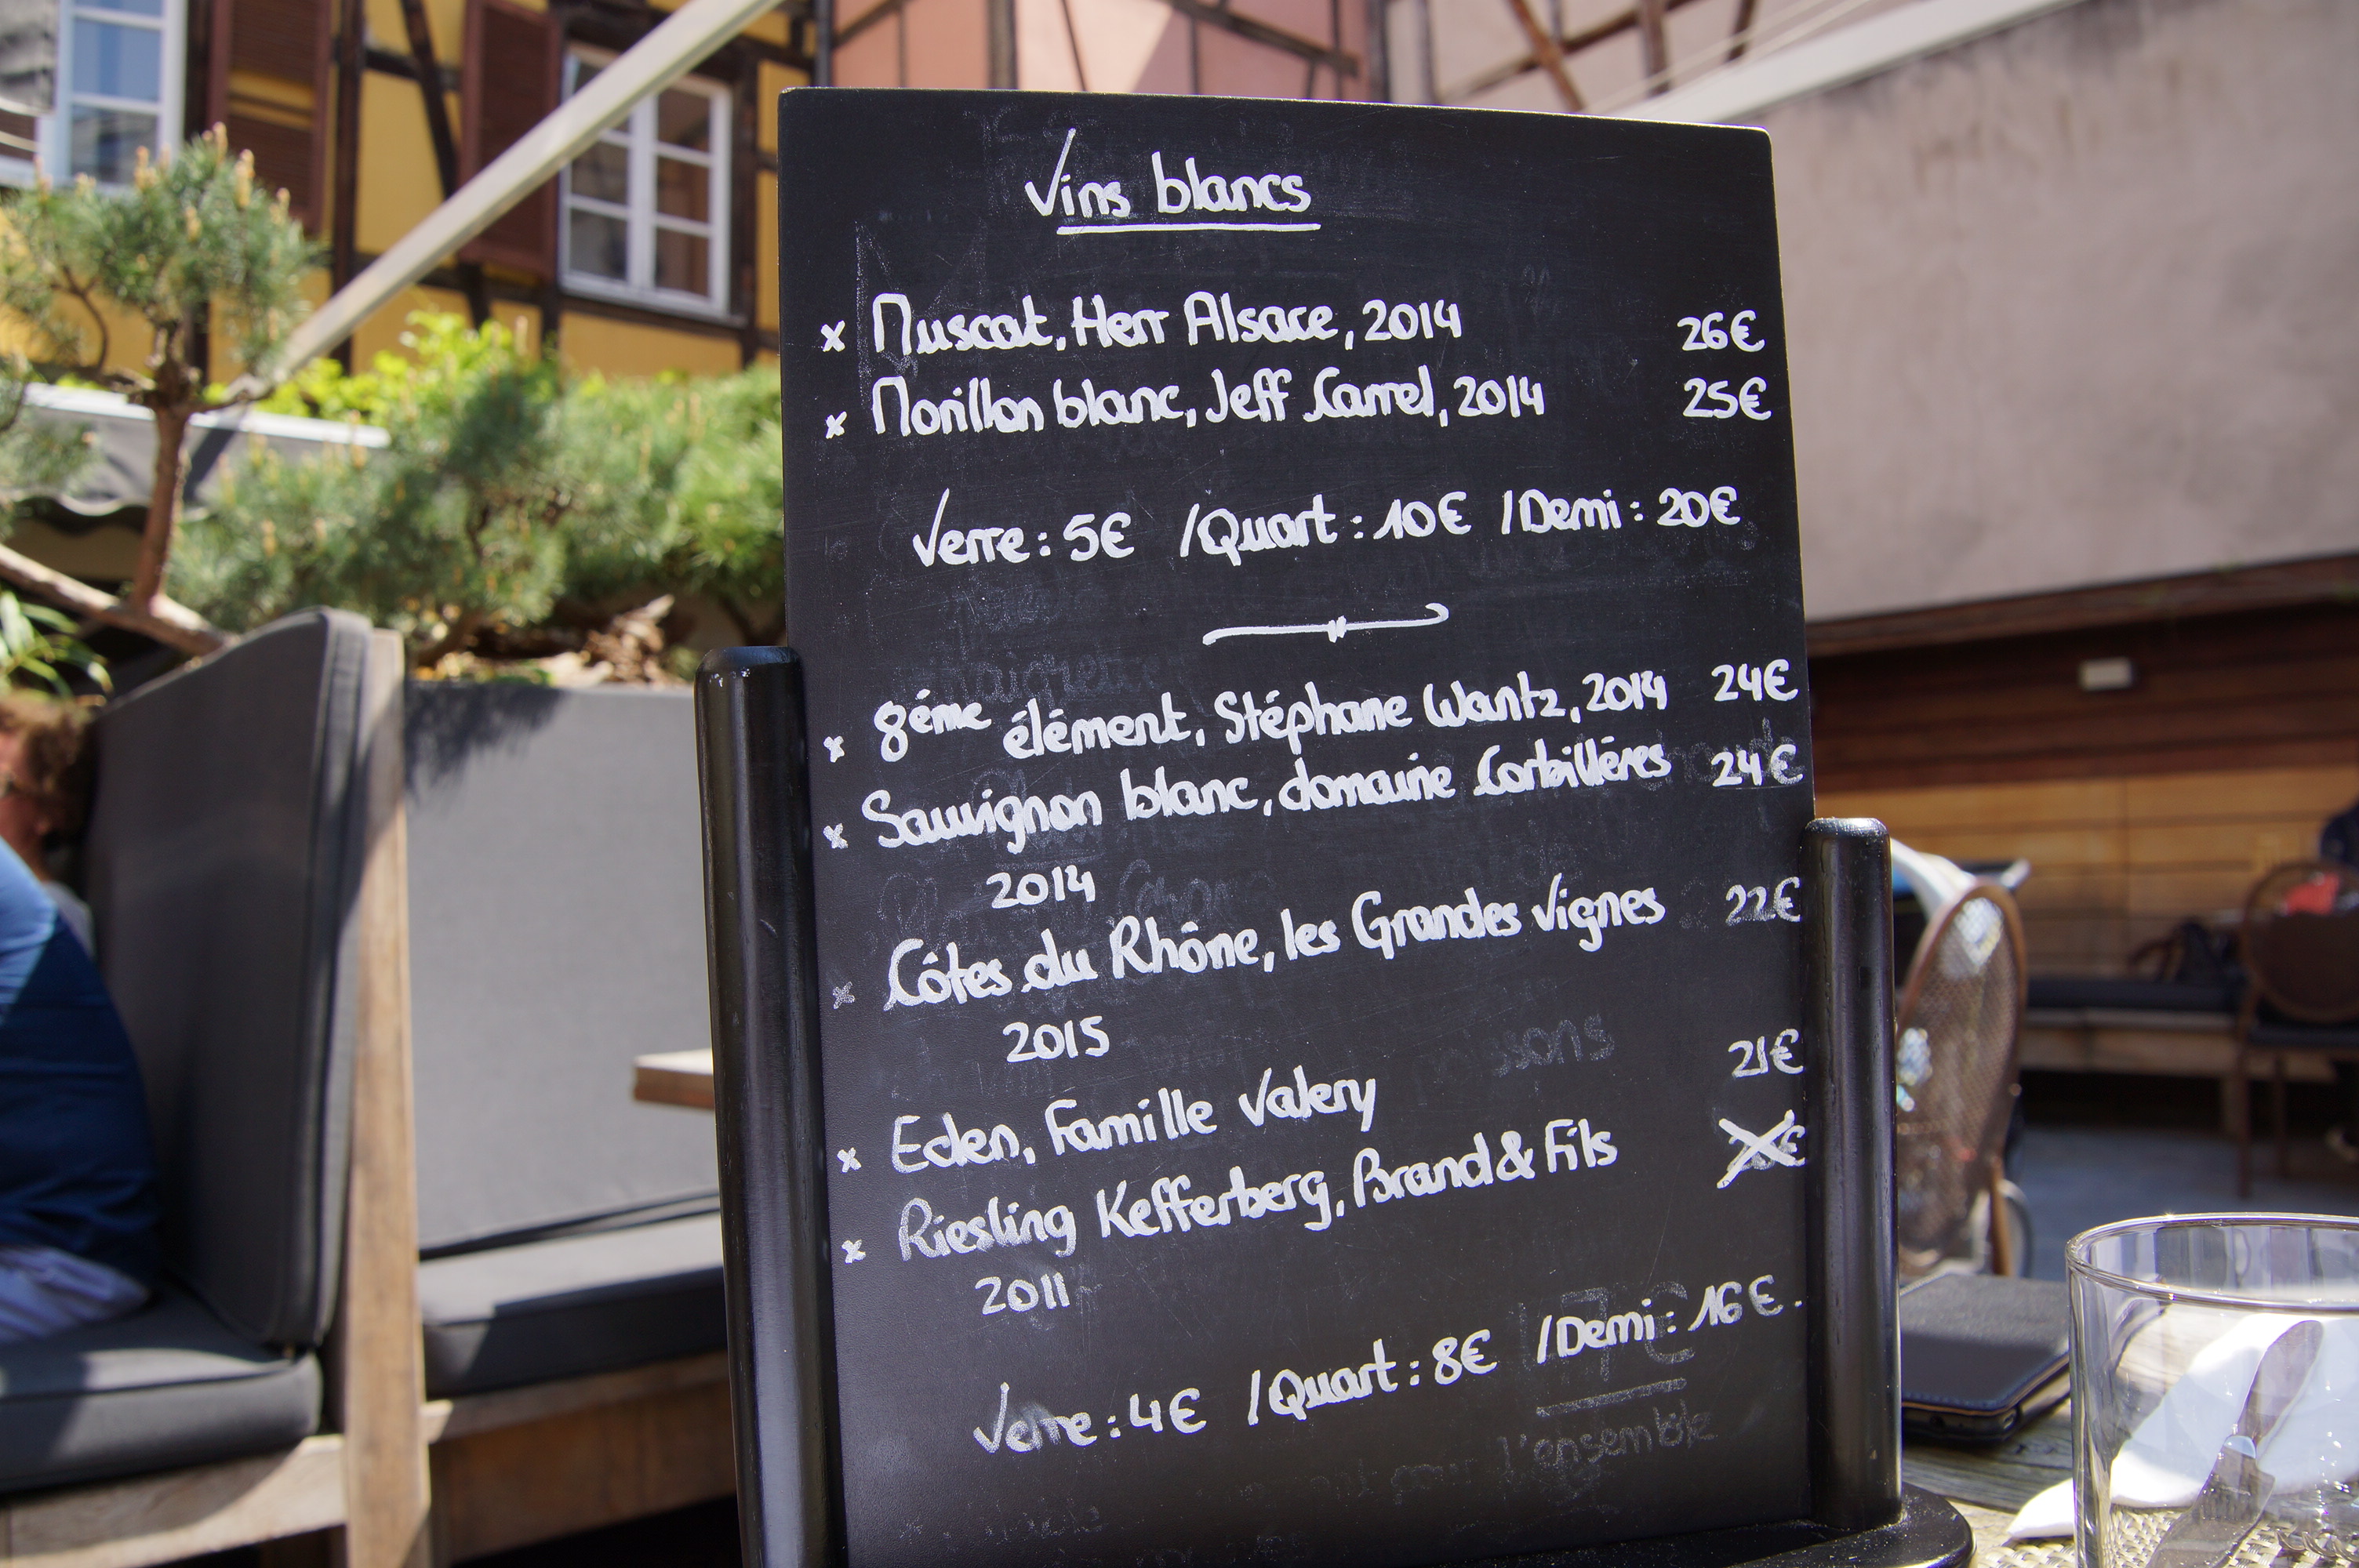 Vins blancs
x Muscat, Herr Alsace, 2014 26€
x Morillon blanc, Jeff Carrel, 2014 25€
Verre : 5€ / Quart : 10€ / Demi : 20€
x 8éme élément, Stéphane Wantz, 2014 24€
x Sauvignon blanc, domaine Corbillères 24€
2014
x Côtes du Rhône, les Grandes Vignes 22€
2015
x Eden, Famille Valery 21€
x Riesling Kefferberg, Brand & Fils €
2011
Verre : 4€ / Quart : 8€ / Demi : 16€.
l'ensemble